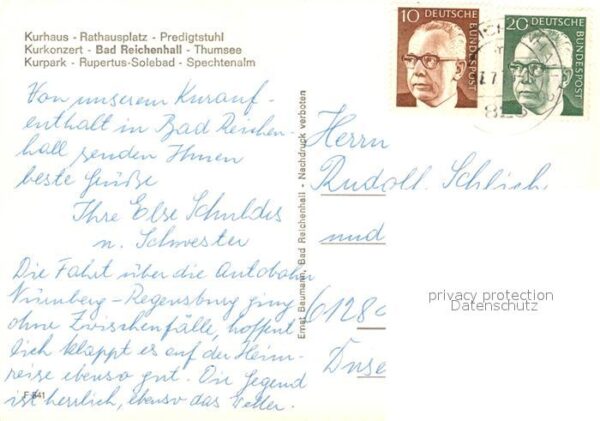 Kurhaus - Rathausplatz - Predigtstuhl
Kurkonzert - Bad Reichenhall - Thumsee
Kurpark - Rupertus-Solebad - Spechtenalm
Von unserem Kurauf-
enthalt in Bad Reichen-
hall senden Ihnen
beste Grüße
Ihre Else Schuldis
u. Schwester
Die Fahrt über die Autobahn
Nürnberg-Regensburg ging
ohne Zwischenfälle, hoffent
lich klappt es auf der Heim-
reise ebenso gut. Die Gegend
ist herrlich, ebenso das Wetter.
F 641
Ernst Baumann, Bad Reichenhall - Nachdruck verboten
10
DEUTSCHE
BUNDESPOST
20
DEUTSCHE
BUNDESPOST
Herrn
Rudolf Schlich
und
6128
privacy protection
Datenschutz